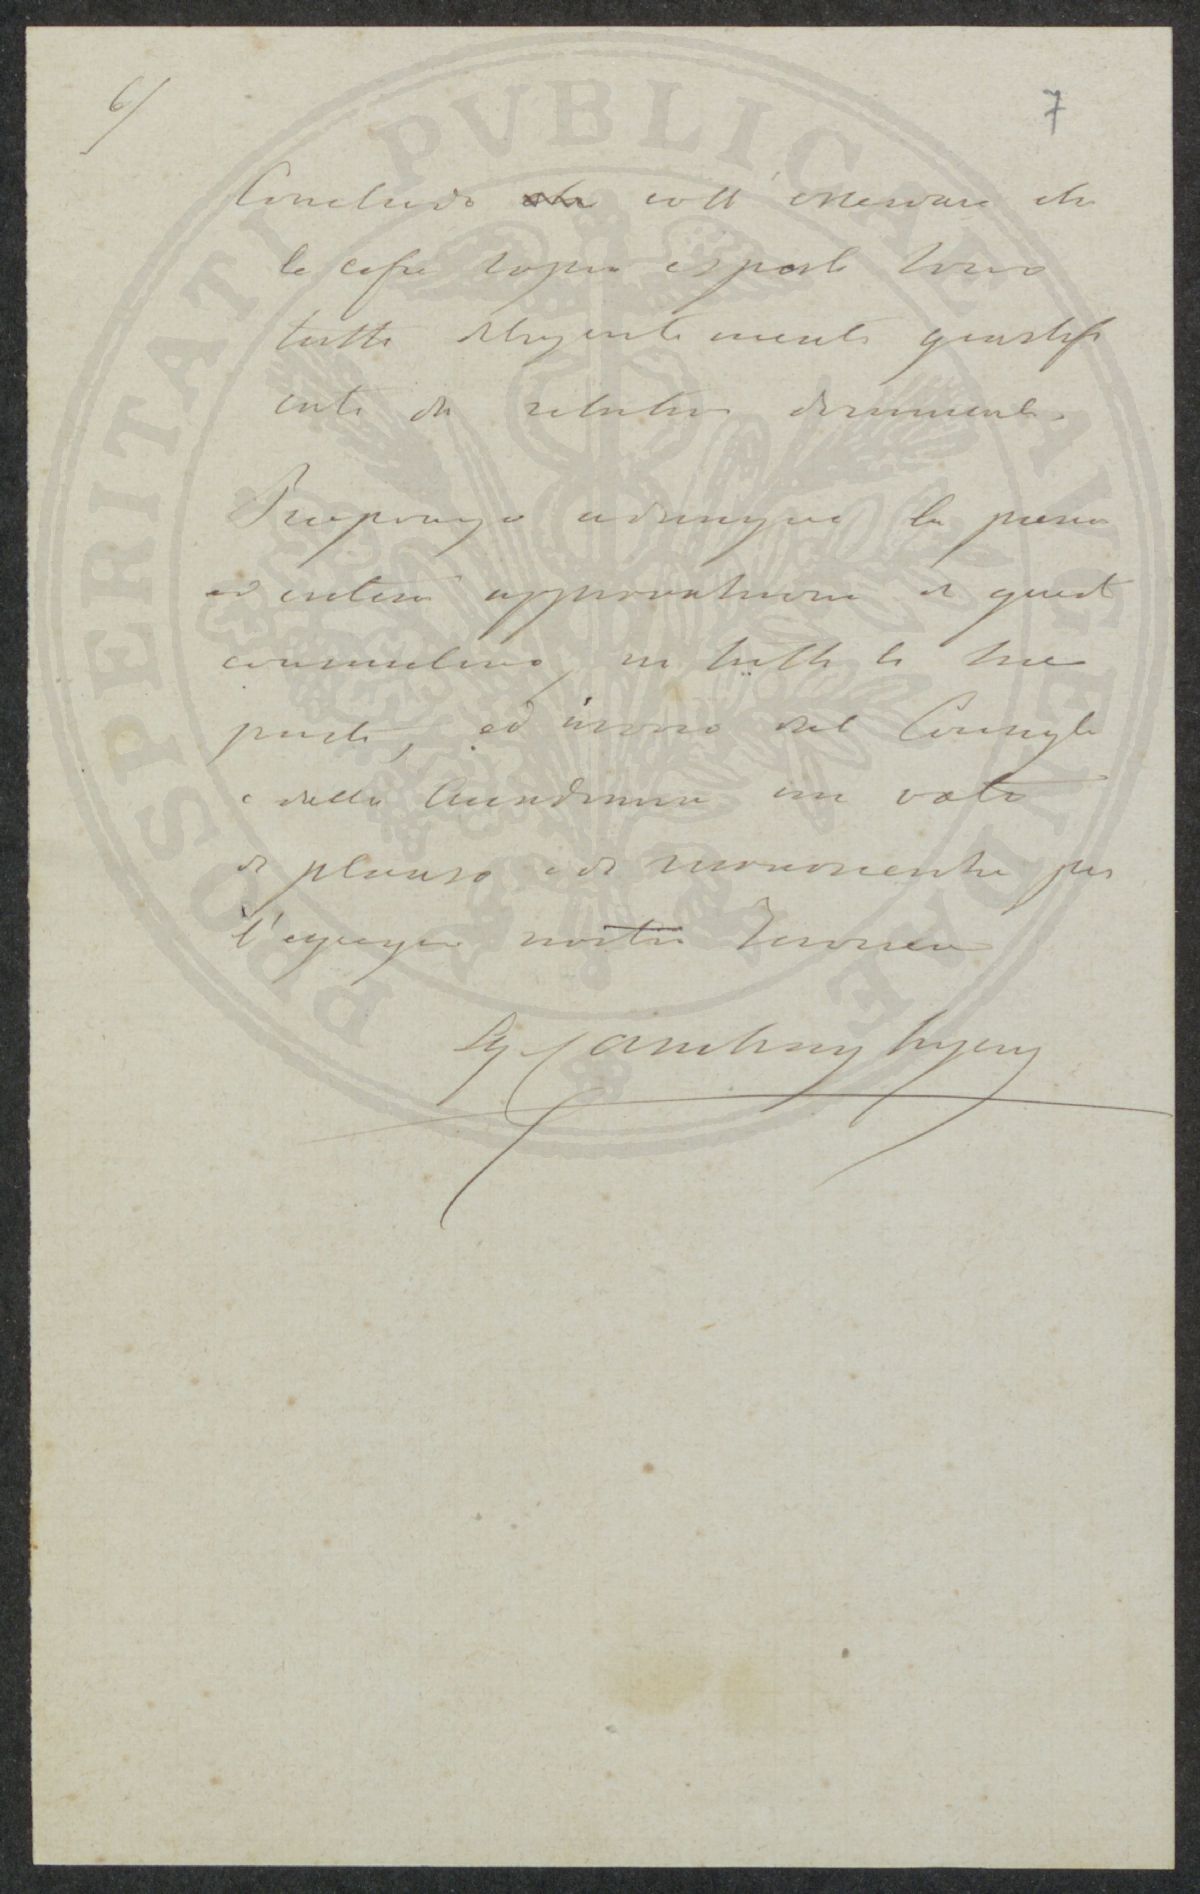 6/
7
Concludo coll' osservare che
le cifre sopra esposte sono
tutte diligentemente giustifi
cate da relativi documenti.
Propongo adunque la piena
ed intera approvazione di questo
consuntivo, in tutte le sue
parti, ed invoco dal Consiglio
e dalla Accademia un voto
di plauso e di riconoscenza per
l'egregio nostro Economo
PROSPERITATI PVBLICAE AVGENDAE